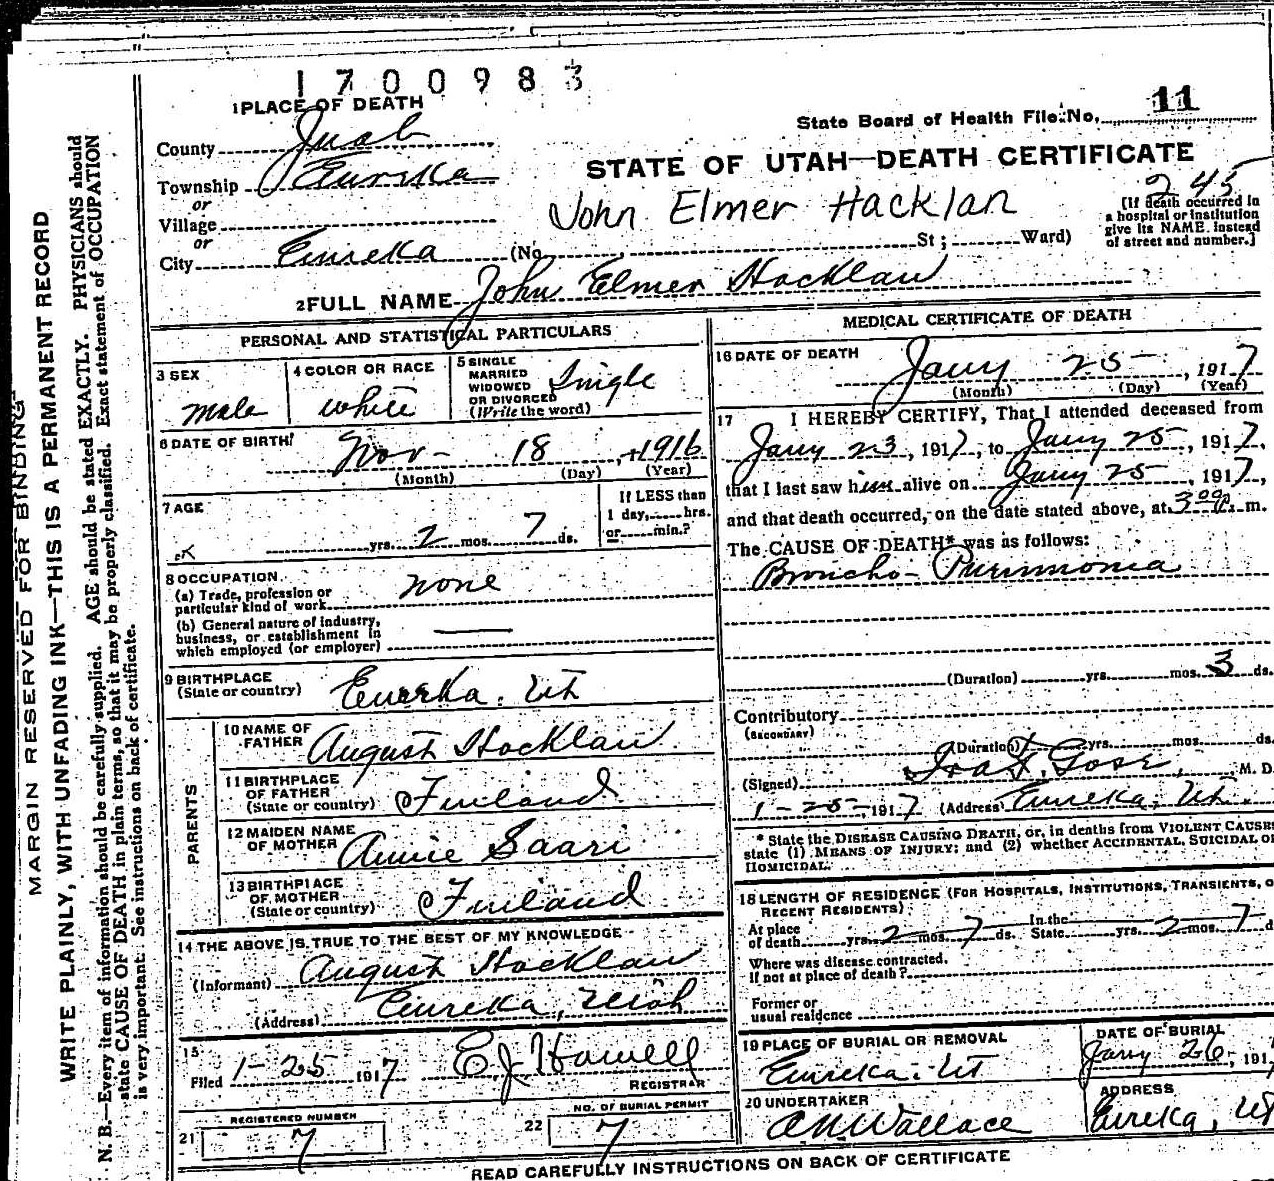 1700983
1 PLACE OF DEATH
State Board of Health File No. 11
County Juab
STATE OF UTAH—DEATH CERTIFICATE
Township Eureka
or
Village
or
City Eureka (No. St; Ward)
John Elmer Hacklan
245
[If death occurred in
a hospital or institution
give its NAME instead
of street and number.]
2 FULL NAME John Elmer Hacklan
PERSONAL AND STATISTICAL PARTICULARS
3 SEX
male
4 COLOR OR RACE
white
5 SINGLE
MARRIED
WIDOWED
OR DIVORCED
(Write the word)
Single
6 DATE OF BIRTH
Nov 18, 1916
(Month) (Day) (Year)
7 AGE
yrs. 2 mos. 7 ds.
If LESS than
1 day, hrs.
or min.?
8 OCCUPATION
(a) Trade, profession or
particular kind of work none
(b) General nature of industry,
business, or establishment in
which employed (or employer)
9 BIRTHPLACE
(State or country) Eureka. Ut
PARENTS
10 NAME OF
FATHER August Hacklan
11 BIRTHPLACE
OF FATHER
(State or country) Finland
12 MAIDEN NAME
OF MOTHER Annie Saari
13 BIRTHPLACE
OF MOTHER
(State or country) Finland
14 THE ABOVE IS TRUE TO THE BEST OF MY KNOWLEDGE
(Informant) August Hacklan
(Address) Eureka, Utah
15
Filed 1-25 1917 E J Howell
REGISTRAR
REGISTERED NUMBER
21 7
NO. OF BURIAL PERMIT
22 7
MEDICAL CERTIFICATE OF DEATH
16 DATE OF DEATH
Jany 25, 1917
(Month) (Day) (Year)
17 I HEREBY CERTIFY, That I attended deceased from
Jany 23, 1917, to Jany 25, 1917,
that I last saw him alive on Jany 25, 1917,
and that death occurred, on the date stated above, at 3 00 P. m.
The CAUSE OF DEATH* was as follows:
Broncho-Pneumonia
(Duration) yrs. mos. 3 ds.
Contributory
(SECONDARY)
(Duration) yrs. mos. ds.
(Signed) M. D.
1-25, 1917 (Address) Eureka, Ut.
* State the DISEASE CAUSING DEATH, or, in deaths from VIOLENT CAUSES
state (1) MEANS OF INJURY; and (2) whether ACCIDENTAL, SUICIDAL OR
HOMICIDAL.
18 LENGTH OF RESIDENCE (FOR HOSPITALS, INSTITUTIONS, TRANSIENTS, O
RECENT RESIDENTS)
At place
of death yrs. 2 mos. 7 ds. In the
State yrs. 2 mos. 7 d
Where was disease contracted.
If not at place of death?
Former or
usual residence
19 PLACE OF BURIAL OR REMOVAL
Eureka. Ut
DATE OF BURIAL
Jany 26, 191
20 UNDERTAKER
A N Wallace
ADDRESS
Eureka, Ut
READ CAREFULLY INSTRUCTIONS ON BACK OF CERTIFICATE
MARGIN RESERVED FOR BINDING
WRITE PLAINLY, WITH UNFADING INK—THIS IS A PERMANENT RECORD
N. B.—Every item of information should be carefully supplied. AGE should be stated EXACTLY. PHYSICIANS should
state CAUSE OF DEATH in plain terms, so that it may be properly classified. Exact statement of OCCUPATION
is very important. See instructions on back of certificate.